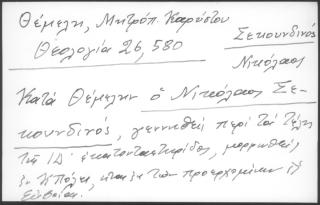 Θέμελη, Μητρόπ. Καρύστου
Θεολογία 26, 580
Σεκουνδινός
Νικόλαος
Κατά Θέμελην ὁ Νικόλαος Σε-
κουνδινός, γεννηθεὶ περὶ τὰ τέλη
τῆς ΙΔ΄ ἑκατονταετηρίδος, μορφωθεὶς
ἐν Κ/Πόλει, εἶναι ἐκ τῶν προερχομένων ἐξ
Εὐβοίας.